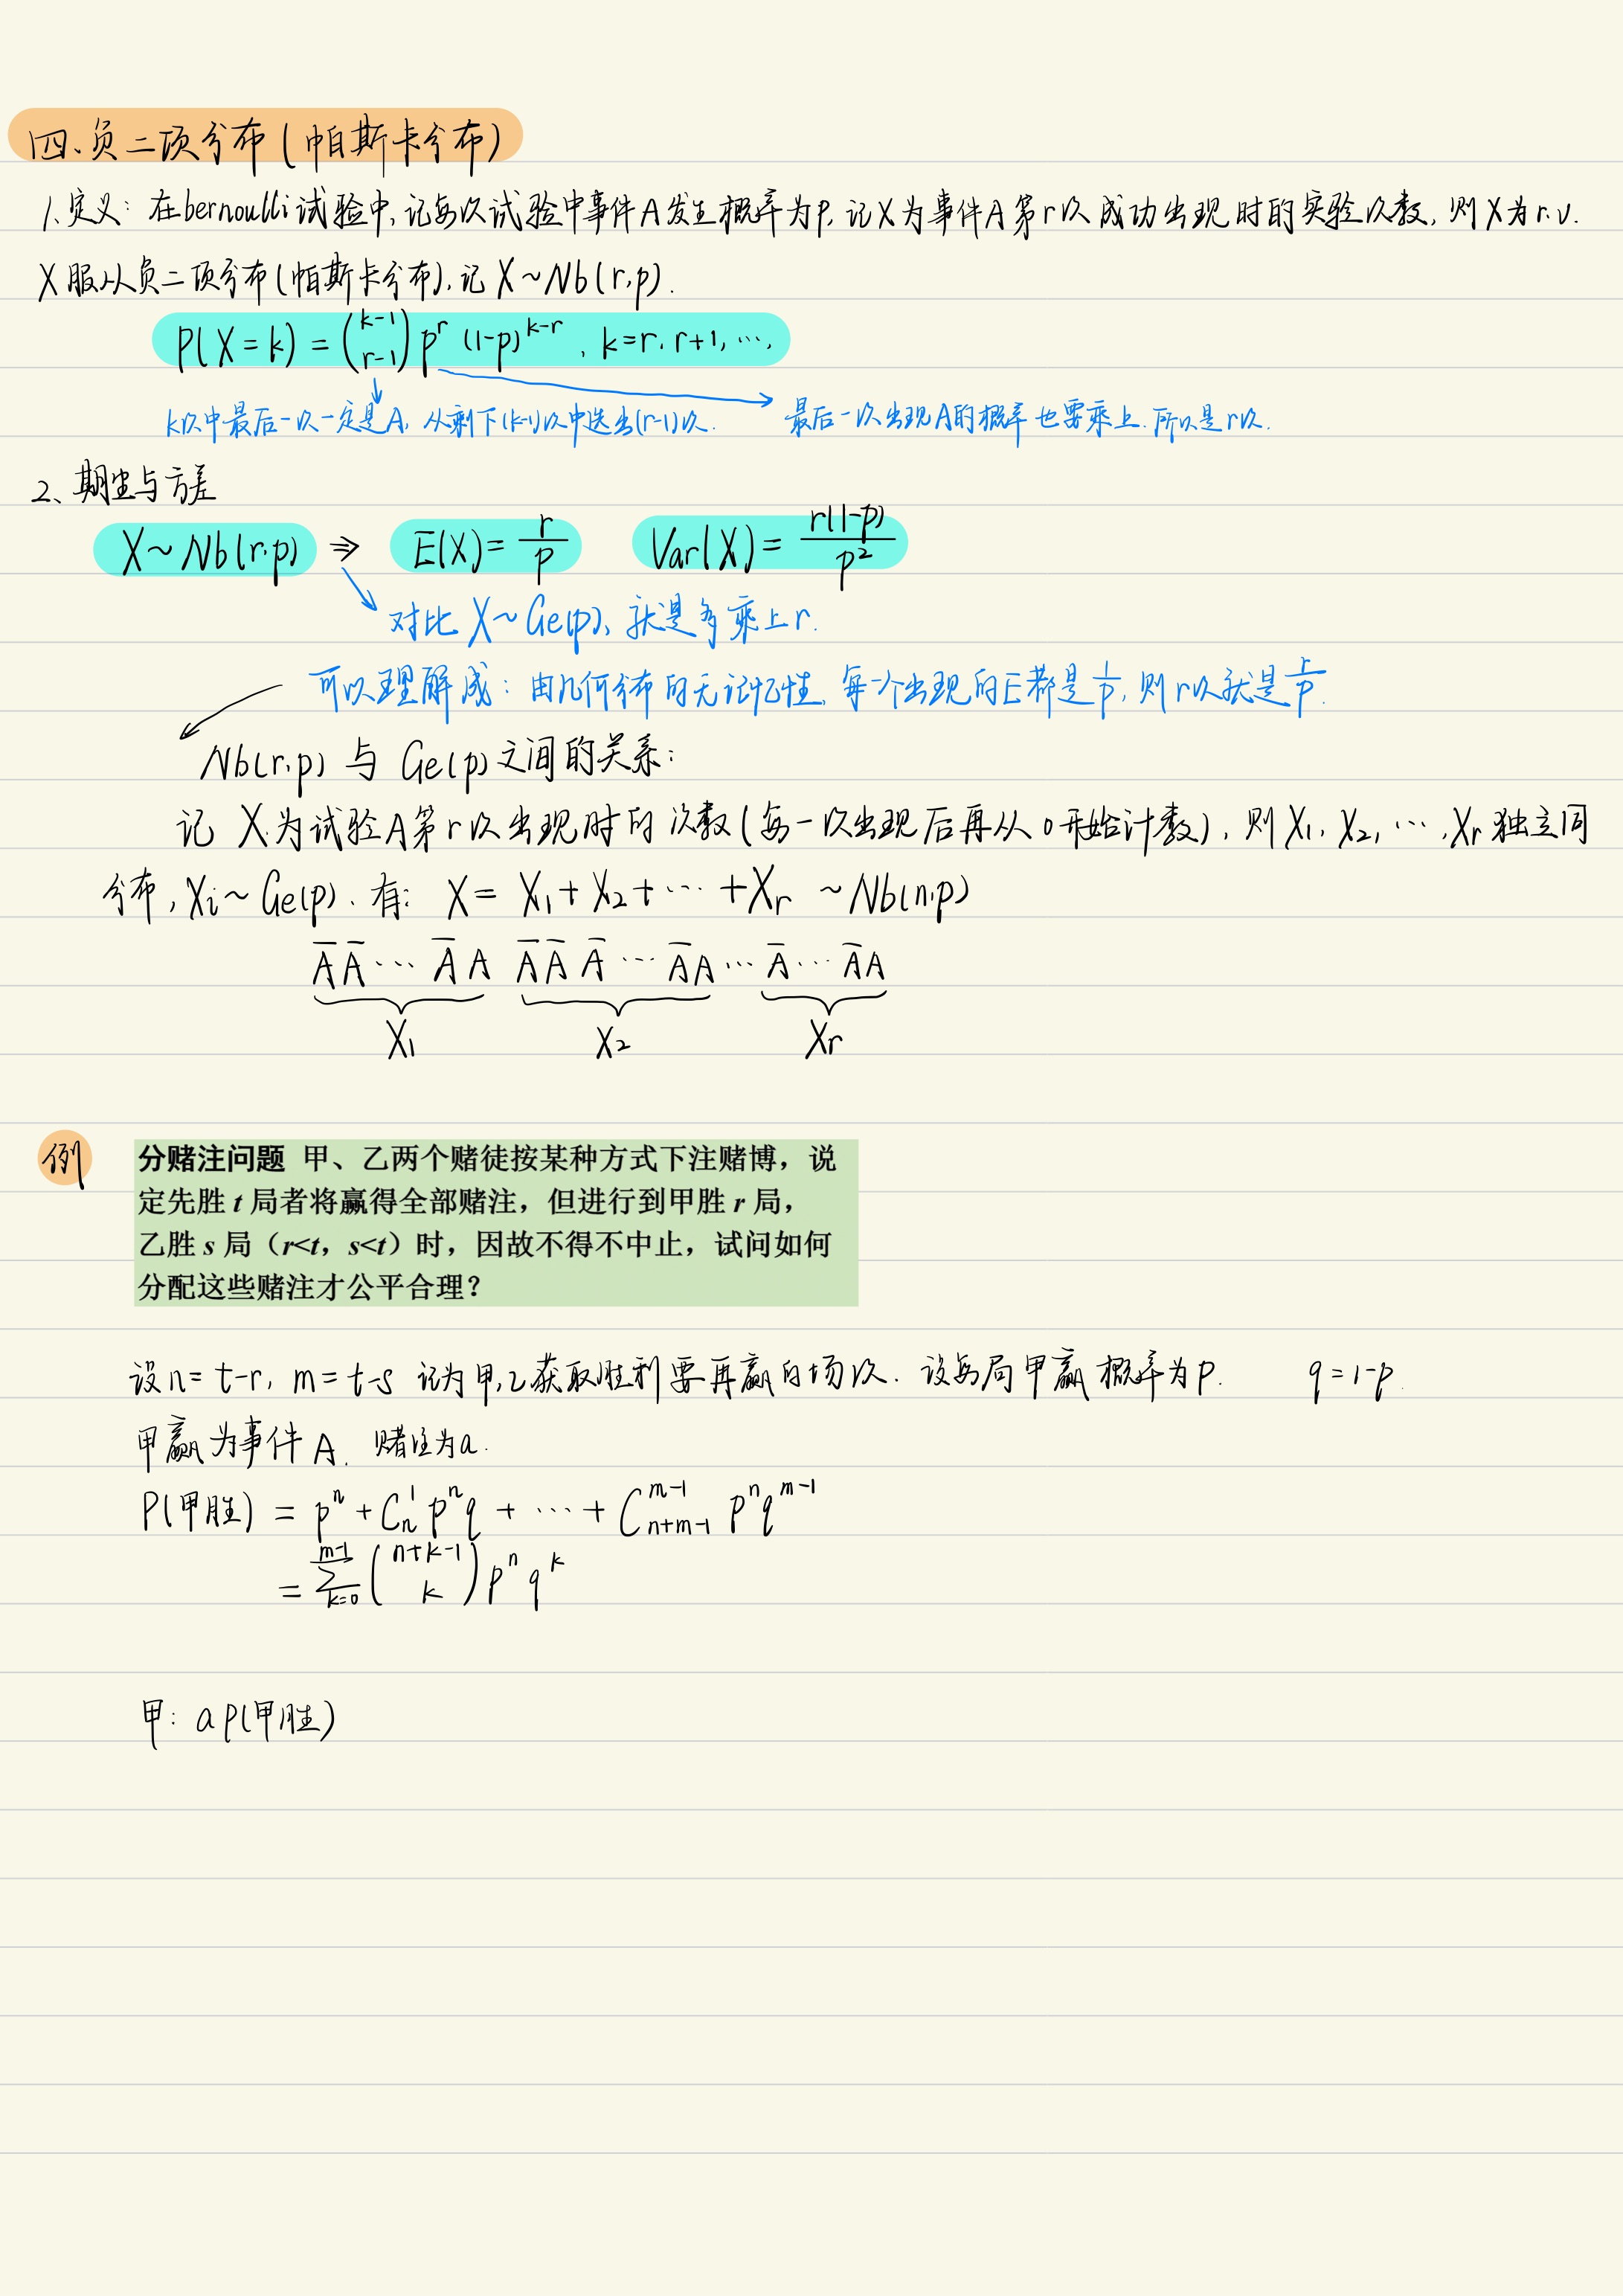 四、负二项分布(帕斯卡分布)
1、定义：在bernoulli试验中，记每次试验中事件A发生概率为p，记X为事件A第r次成功出现时的实验次数，则X为r.v.
X服从负二项分布(帕斯卡分布)，记X~Nb(r,p).
P(X=k) = \binom{k-1}{r-1} p^r (1-p)^{k-r}, k=r, r+1, ⋯,
k次中最后一次一定是A，从剩下(k-1)次中选出(r-1)次. 最后一次出现A的概率也要乘上.所以是r次.
2、期望与方差
X~Nb(r,p) ⇒ E(X)= \frac{r}{p} Var(X)= \frac{r(1-p)}{p^2}
对比X~Ge(p)，就是多乘上r.
可以理解成：由几何分布的无记忆性，每一个出现的E都是\frac{1}{p}，则r次就是\frac{r}{p}.
Nb(r,p)与Ge(p)之间的关系：
记X为试验A第r次出现时的次数(每一次出现后再从0开始计数)，则X_1, X_2, ⋯, X_r独立同
分布，X_i~Ge(p)、有：X= X_1+X_2+⋯+X_r ~Nb(n,p)
\bar{A}\bar{A}⋯\bar{A}A \bar{A}\bar{A}\bar{A}⋯\bar{A}A⋯\bar{A}⋯\bar{A}A
X_1 X_2 X_r
例
分赌注问题 甲、乙两个赌徒按某种方式下注赌博，说
定先胜 t 局者将赢得全部赌注，但进行到甲胜 r 局，
乙胜 s 局（r<t，s<t）时，因故不得不中止，试问如何
分配这些赌注才公平合理？
设n=t-r, m=t-s 记为甲,乙获取胜利要再赢的场次. 设每局甲赢概率为p. q=1-p.
甲赢为事件A. 赌注为a.
P(甲胜) = p^n + C_n^1 p^n q + ⋯ + C_{n+m-1}^{m-1} p^n q^{m-1}
= \sum_{k=0}^{m-1} \binom{n+k-1}{k} p^n q^k
甲：aP(甲胜)